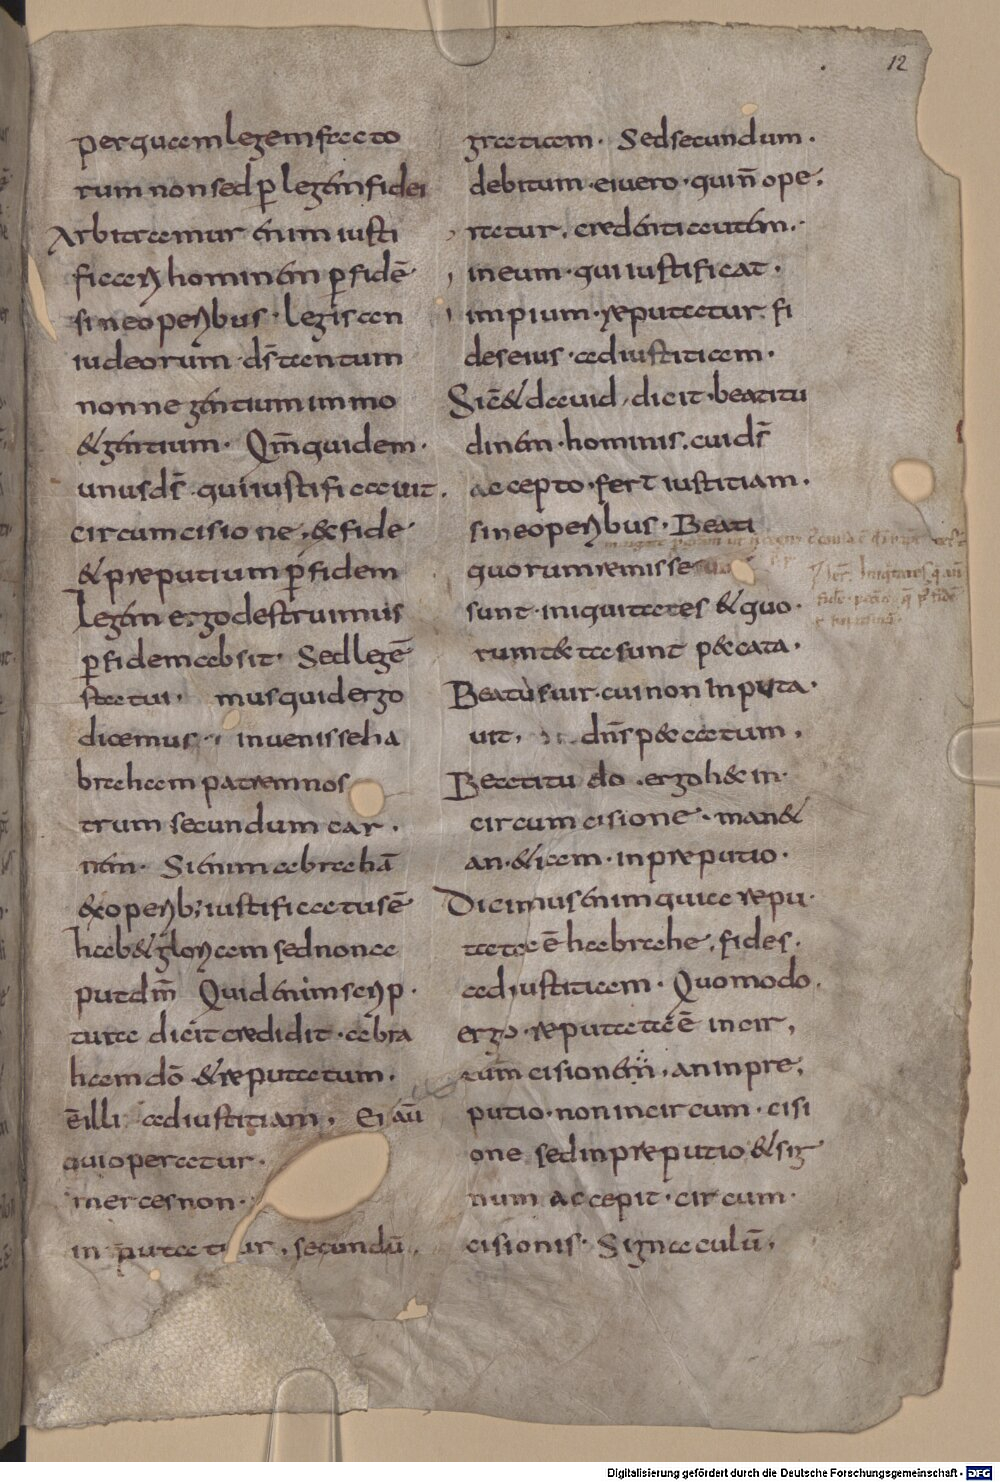 12
per quam legem facto
rum non sed p̄ legem fidei
Arbitramur enim iusti
ficari hominem p fidē
sine operibus · legis an
iudeorum d̄s tantum
nonne gentium immo
& gentium · Qm̄ quidem ·
unus d̄s · qui iustificauit .
circumcisione · & fide ·
& pręputium p̄ fidem
Legem ergo destruimus
p̄ fidem absit · Sed legē
statui · mus quid ergo
dicemus inuenisse ha
braham patrem nos
trum secundum car .
nem · Si enim abrahā
& operib; iustificatus ē
hab& gloriam sed non a
put dm̄ Quid enim scrip ·
tura dicit credidit · abra
ham dō & reputatum .
ē illi ad iustitiam , Ei aū
qui operatur ·
merces non ·
in putatur , secundū .
gratiam · Sed secundum .
debitum · ei uero · qui n̄ ope ;
ratur , credenti autem .
in eum · qui iustificat ·
impium · reputatur fi
des eius · ad iustitiam ·
Sic̄ & dauid , dicit · beatitu
dinem · hominis . cui d̄s
accepto · fert iustitiam .
sine operibus · Beati
quorum remisse
sunt · iniquitates & quo ·
rum t&ta sunt p&cata ·
Beatus uir · cui non Inputa ·
uit , dn̄s p&catum ,
Beatitu do . ergo h&in ·
circumcisione · man&
an · & iam · in pręputio ·
Dicimus enim quia repu ·
tata ē habrahe , fides .
ad iustitiam · Quomodo .
ergo · reputata ē in cir ,
cum cisionem , an in pre ;
putio · non in circum · cisi
one sed in pręputio & sig
num accepit · circum ·
cisionis · Signaculū ,
Digitalisierung gefördert durch die Deutsche Forschungsgemeinschaft · DFG